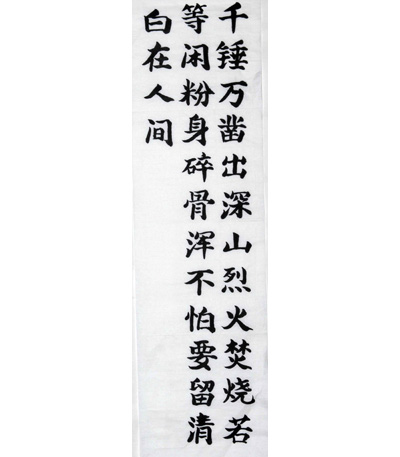 千锤万凿出深山烈火焚烧若
等闲粉身碎骨浑不怕要留清
白在人间